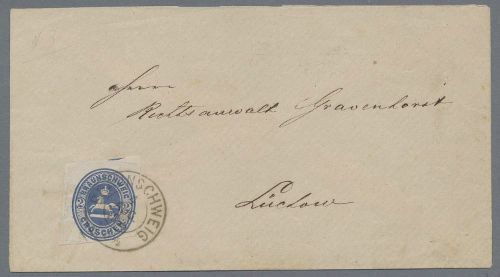 Herrn
Rechtsanwalt Gravenhorst
Lüchow
BRAUNSCHWEIG
GROSCHEN
NSCHWEIG